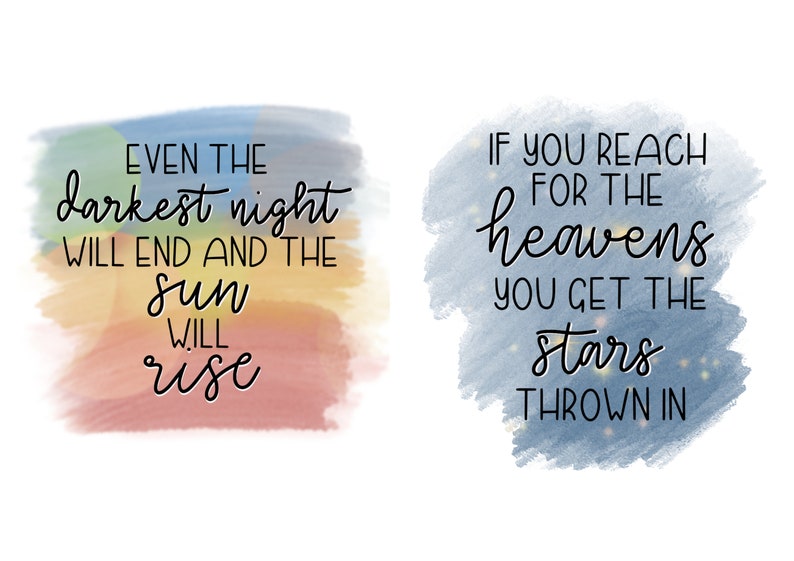 EVEN THE
darkest night
WILL END AND THE
sun
WILL
rise
IF YOU REACH
FOR THE
heavens
YOU GET THE
stars
THROWN IN